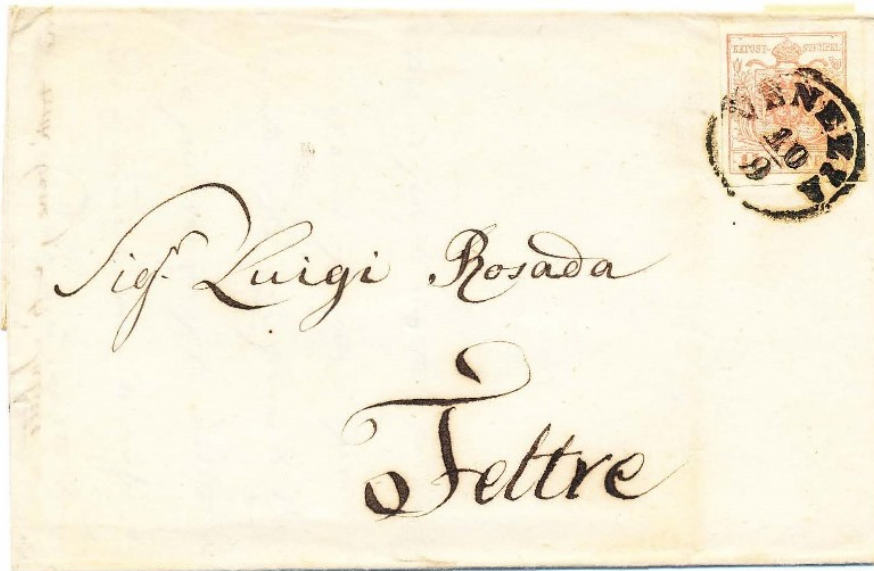 KKPOST-STEMPEL
VENEZIA
10
9
Sigr. Luigi Rosada
Feltre